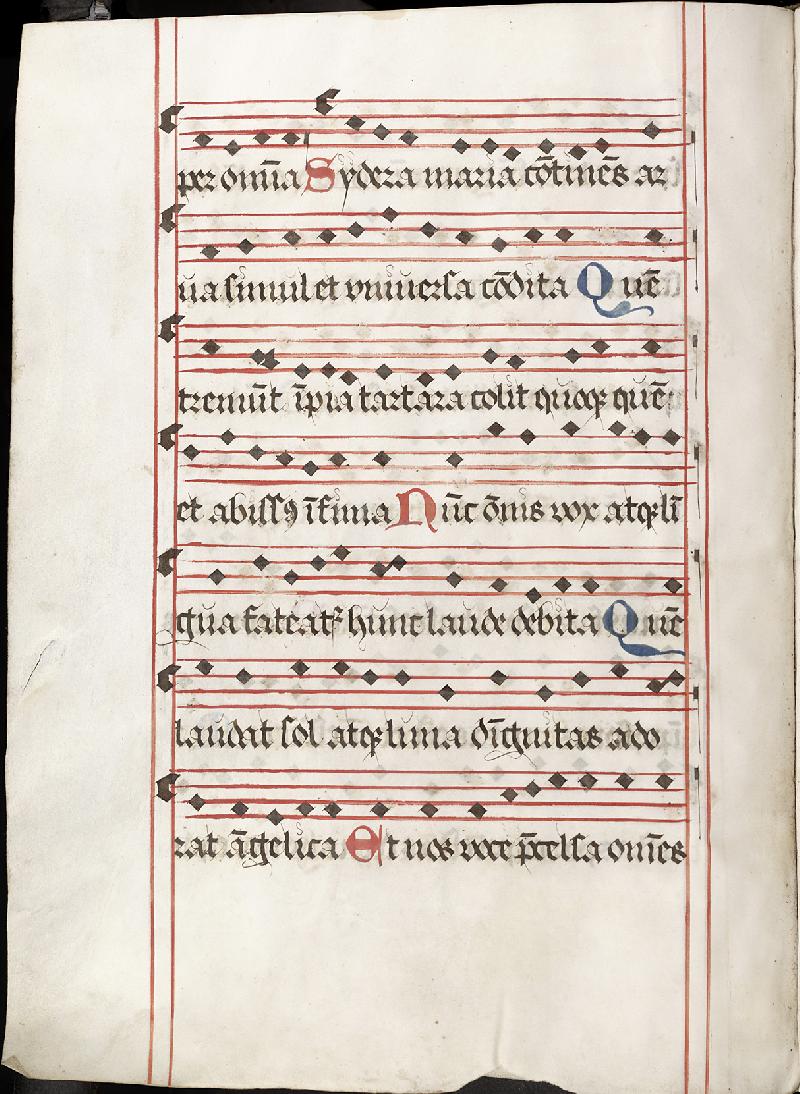 per om̄ia Sydera maria cōtinēs ar
ua simul et vniuersa cōdita Quē
tremūt īpia tartara colit quoqꝫ quē
et abissꝰ īfima Nūc ōnis vox atqꝫ lī
gua fateatr hunc laude debita Quē
laudat sol atqꝫ luna dīgnitas ado
rat āgelica Et nos voce p̄celsa omēs